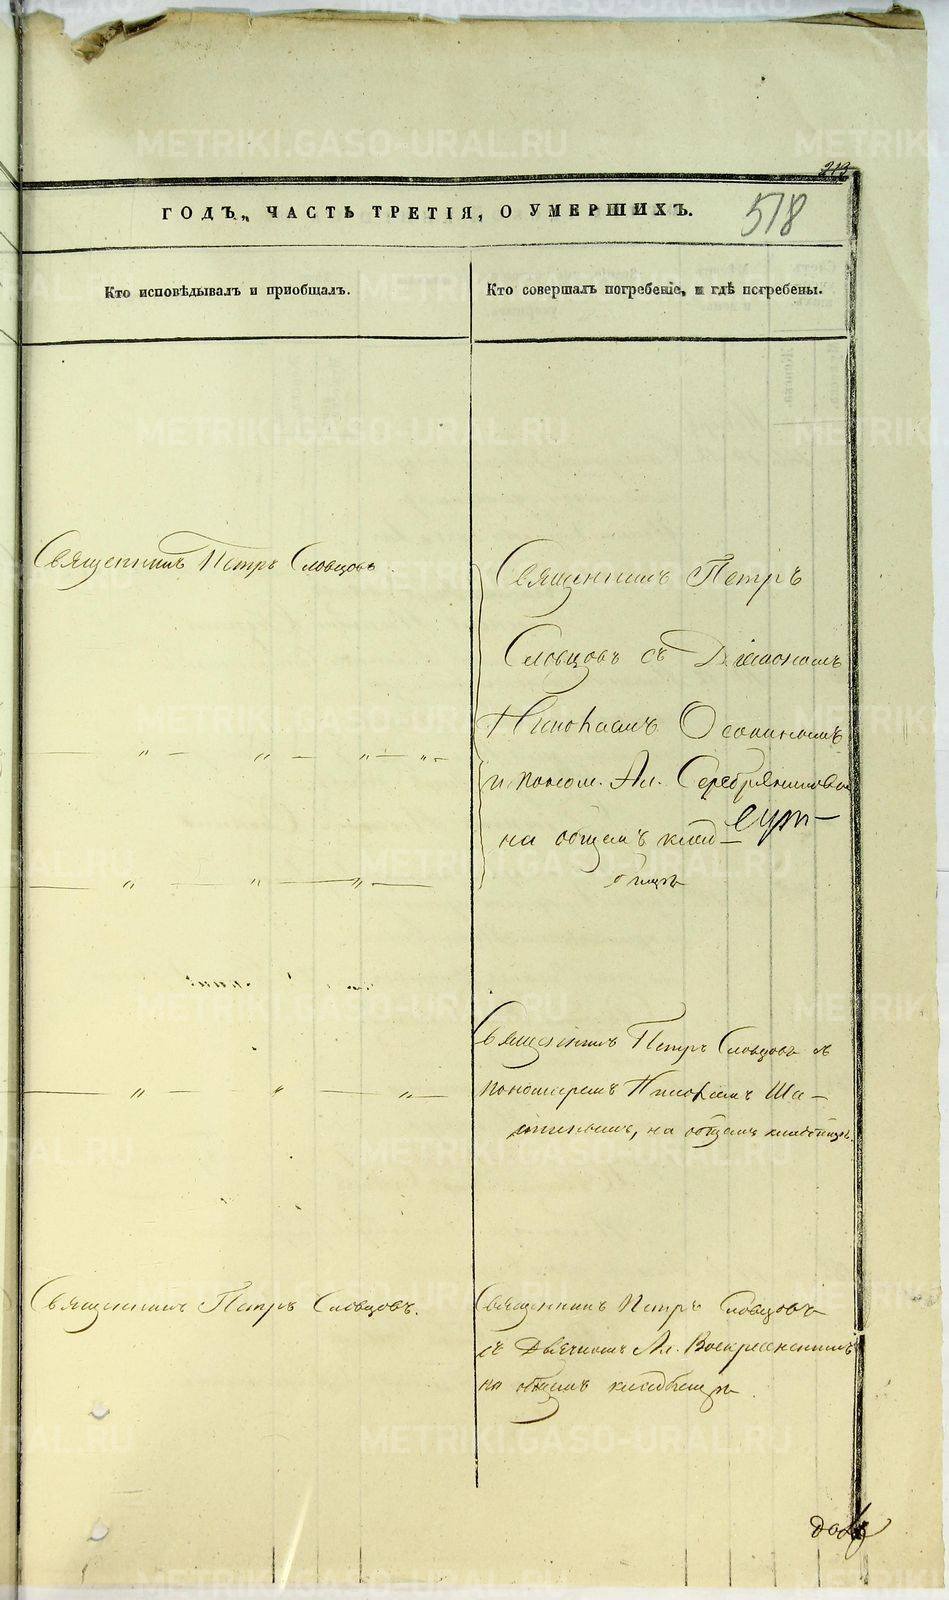 213
ГОДЪ„ ЧАСТЬ ТРЕТІЯ, О УМЕРШИХЪ.
518
Кто исповѣдывалъ и пріобщалъ.
Кто совершалъ погребеніе, и гдѣ погребены.
Священникъ Петръ Словцовъ
Священникъ Петръ
Словцовъ съ Діакономъ
Николаемъ Осокинымъ
и поном. Ал. Серебряниковы
на общемъ клад-
бищѣ
Священникъ Петръ Словцовъ съ
пономаремъ Николаемъ Ша-
, на общемъ кладбищѣ.
Священникъ Петръ Словцовъ.
Священникъ Петръ Словцовъ
съ Дьячкомъ Ал. Воскресенскимъ
на общемъ кладбищѣ
METRIKI.GASO-URAL.RU